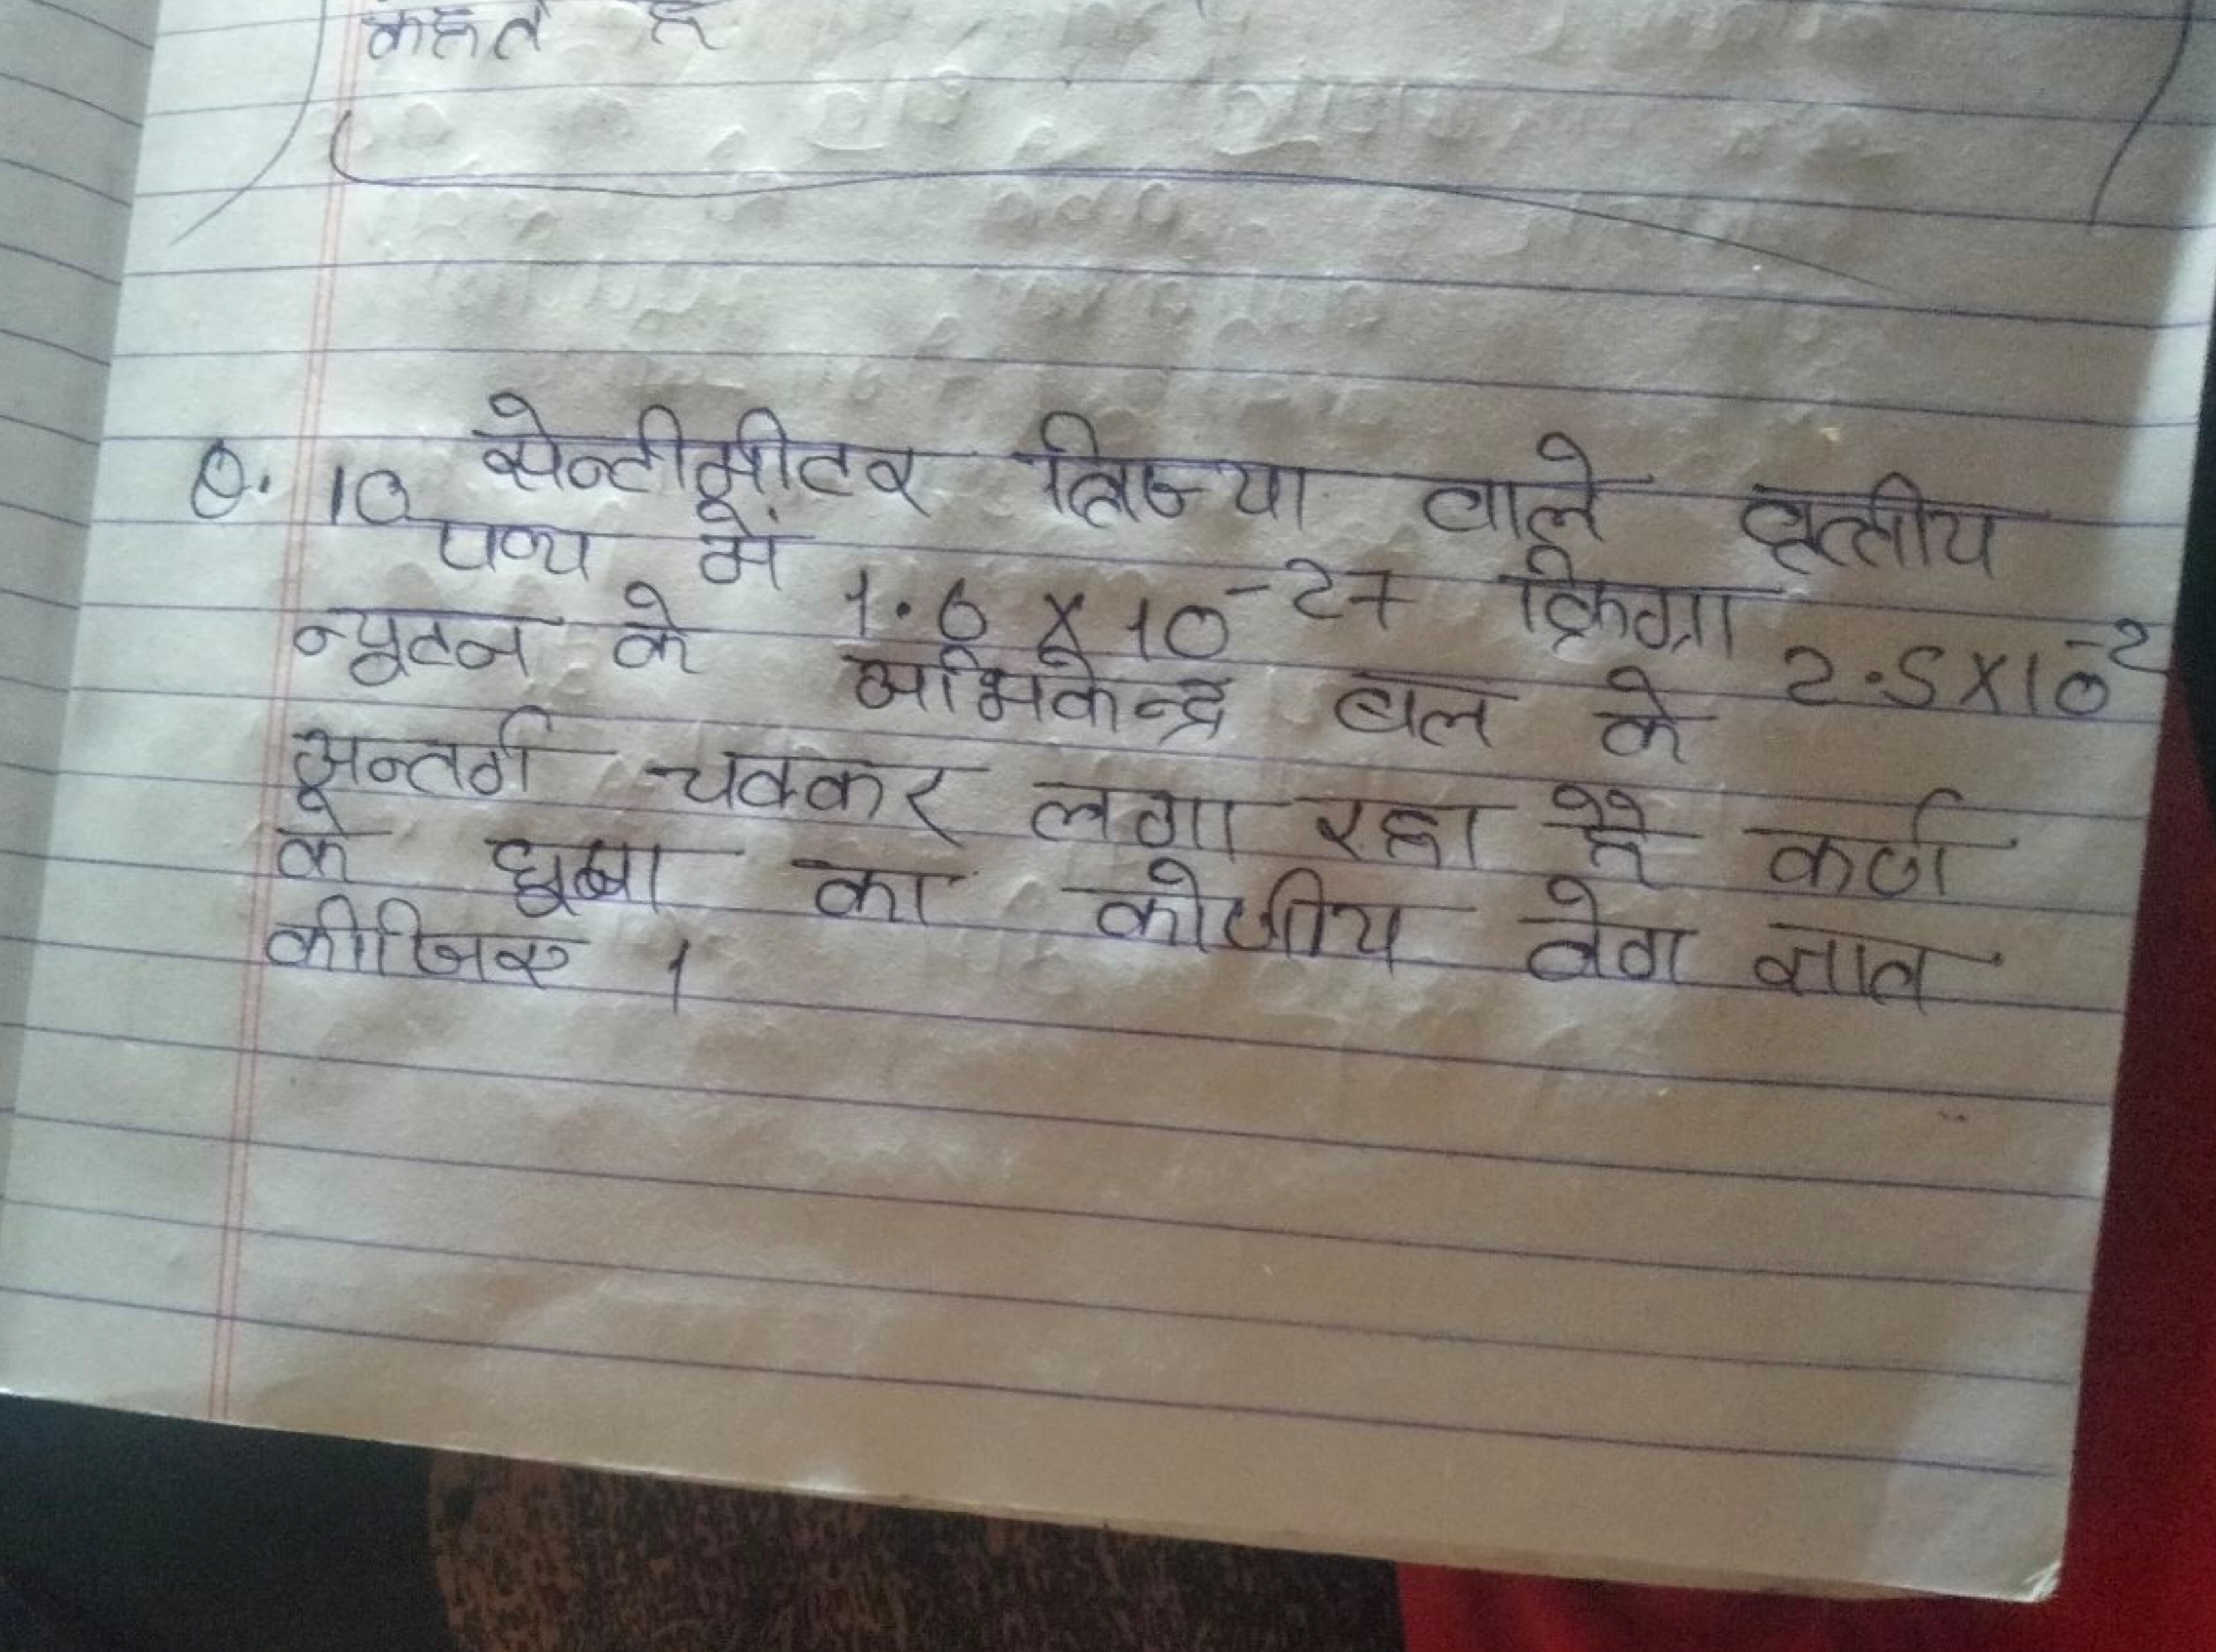 कहते है
Q. 10 सेन्टीमीटर त्रिज्या वाले वृत्तीय
पथ में 1.6 X 10⁻²⁷ किग्रा 2.5X10⁻²
न्यूटन के अभिकेन्द्र बल के
अन्तर्ग चक्कर लगा रहा है कर्ण
के का कोणीय वेग ज्ञात
कीजिए ।